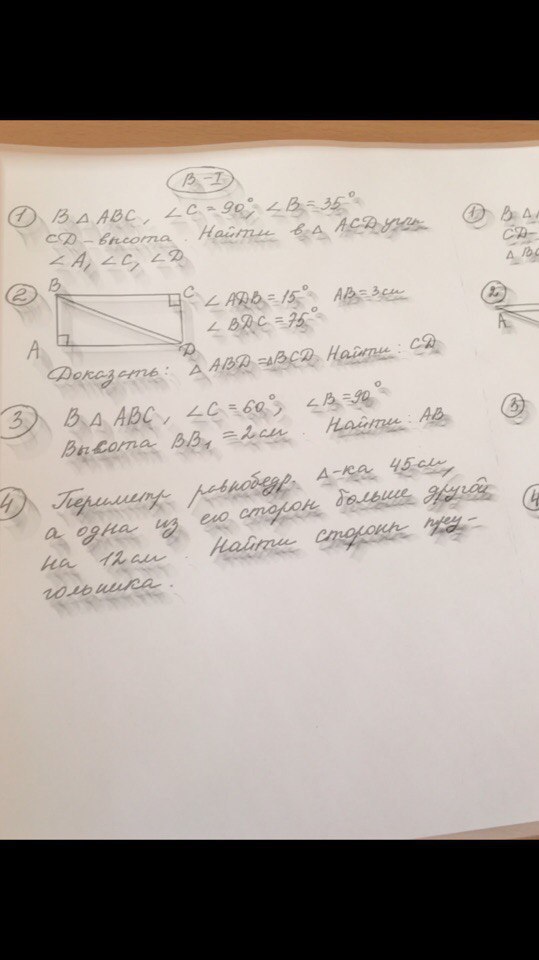 В-I
① В △ ABC, ∠C = 90°, ∠B = 35°
CD - высота. Найти в △ ACD углы
∠A, ∠C, ∠D
② B C ∠ADB = 15° AB = 3 см
∠BDC = 75°
A D
Доказать: △ ABD = △BCD. Найти: CD
③ В △ ABC, ∠C = 60°, ∠B = 90°
Высота BB₁ = 2 см. Найти: AB
④ Периметр равнобедр. △-ка 45 см,
а одна из его сторон больше другой
на 12 см. Найти сторонн треу-
гольника.
① В △
CD-
△ BC
②
A
③
④